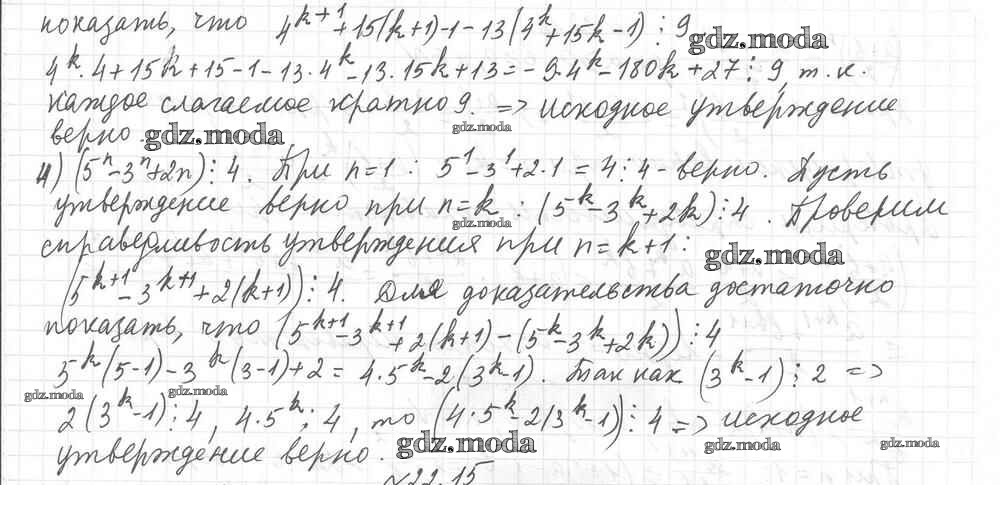 показать, что 4^{k+1}+15(k+1)-1-13(4^k+15k-1)⋮9
gdz.moda
4^k·4+15k+15-1-13·4^k-13·15k+13=-9·4^k-180k+27⋮9, т.к.
каждое слагаемое кратно 9. => исходное утверждение
gdz.moda
верно.
gdz.moda
4) (5^n-3^n+2n)⋮4. При n=1: 5^1-3^1+2·1=4⋮4-верно. Пусть
утверждение верно при n=k: (5^k-3^k+2k)⋮4. Проверим
gdz.moda
справедливость утверждения при n=k+1:
gdz.moda
(5^{k+1}-3^{k+1}+2(k+1))⋮4. Для доказательства достаточно
показать, что (5^{k+1}-3^{k+1}+2(k+1)-(5^k-3^k+2k))⋮4
5^k(5-1)-3^k(3-1)+2=4·5^k-2(3^k-1). Так как (3^k-1)⋮2 =>
gdz.moda
gdz.moda
2(3^k-1)⋮4, 4·5^k⋮4, то (4·5^k-2(3^k-1))⋮4 => исходное
утверждение верно.
gdz.moda
gdz.moda
gdz.moda
№22.15